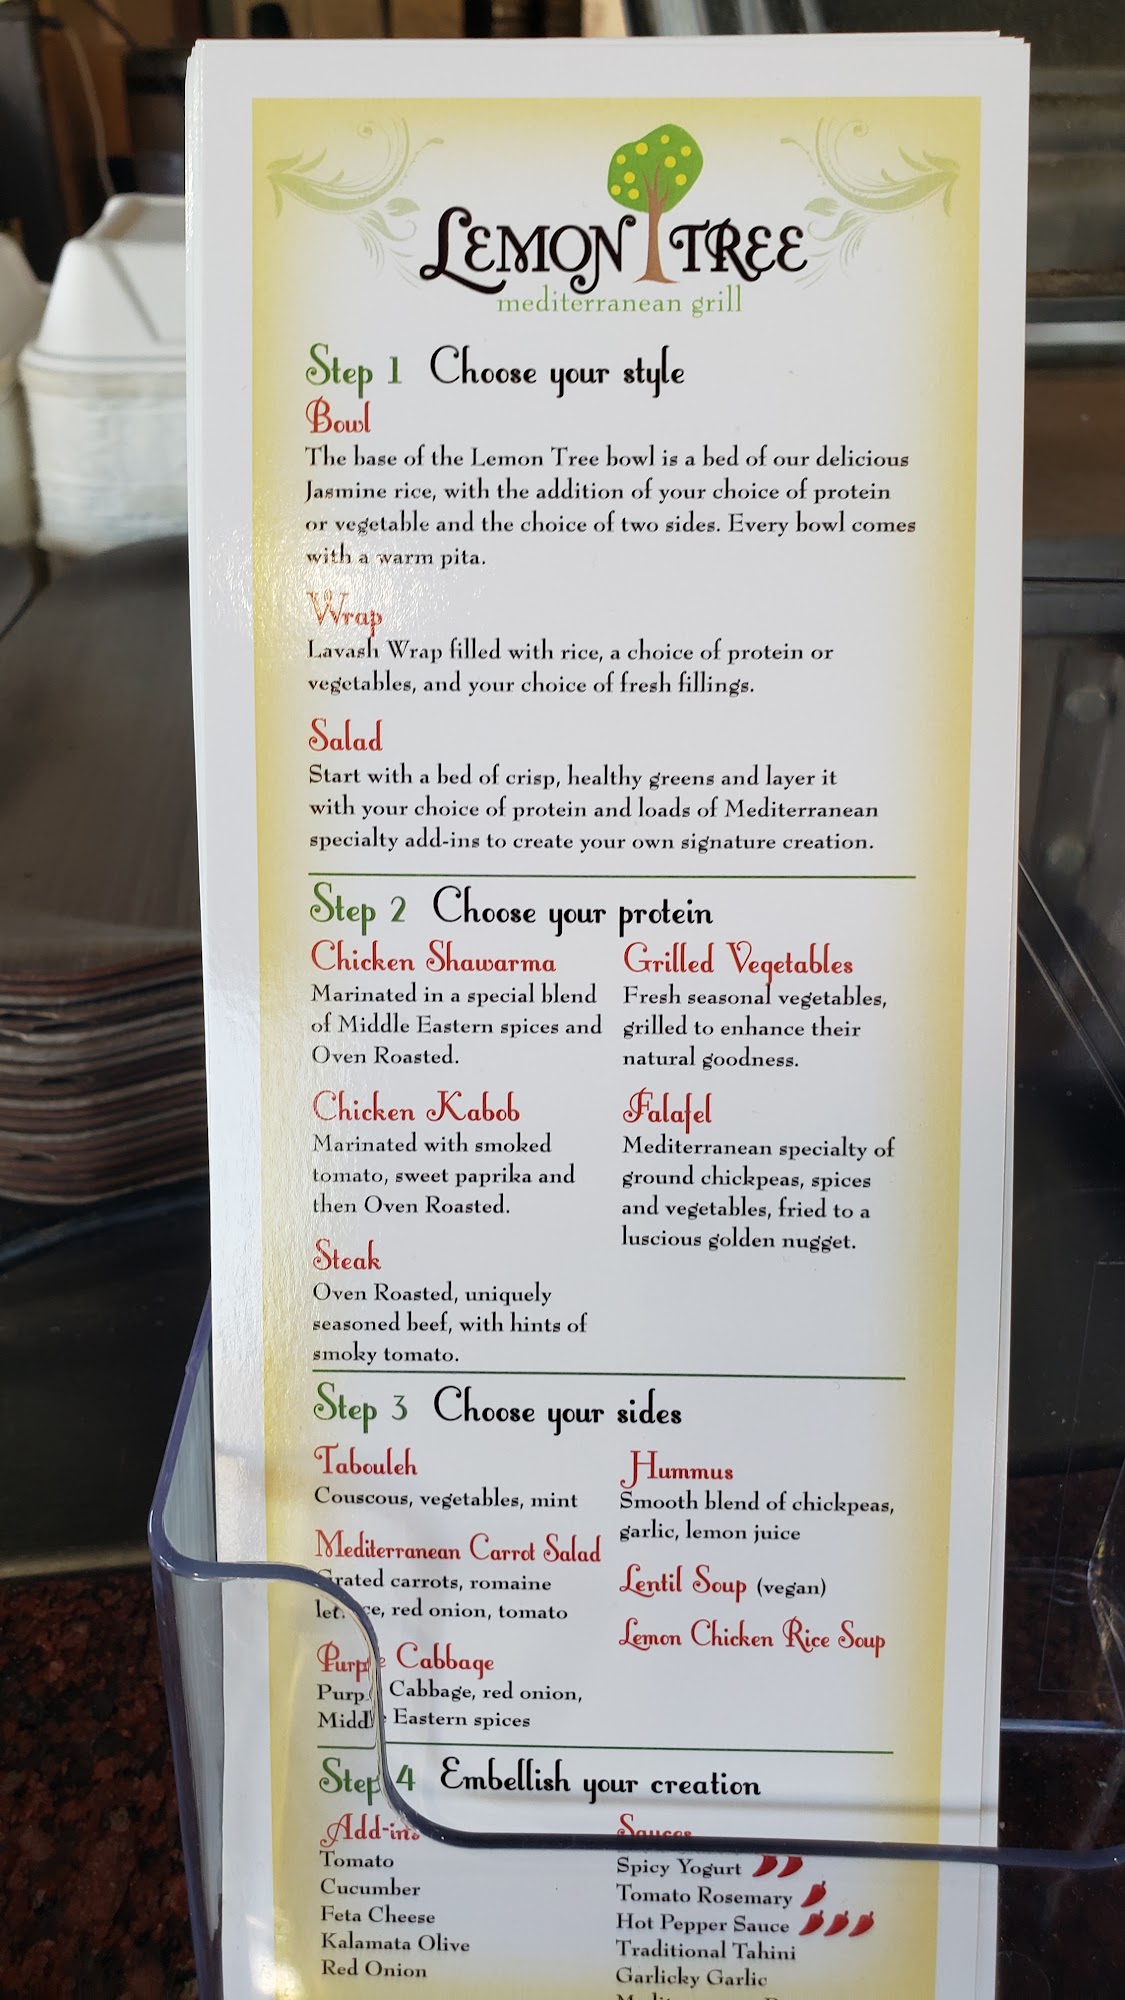 LEMON TREE
mediterranean grill
Step 1 Choose your style
Bowl
The base of the Lemon Tree bowl is a bed of our delicious
Jasmine rice, with the addition of your choice of protein
or vegetable and the choice of two sides. Every bowl comes
with a warm pita.
Wrap
Lavash Wrap filled with rice, a choice of protein or
vegetables, and your choice of fresh fillings.
Salad
Start with a bed of crisp, healthy greens and layer it
with your choice of protein and loads of Mediterranean
specialty add-ins to create your own signature creation.
Step 2 Choose your protein
Chicken Shawarma
Marinated in a special blend
of Middle Eastern spices and
Oven Roasted.
Chicken Kabob
Marinated with smoked
tomato, sweet paprika and
then Oven Roasted.
Steak
Oven Roasted, uniquely
seasoned beef, with hints of
smoky tomato.
Grilled Vegetables
Fresh seasonal vegetables,
grilled to enhance their
natural goodness.
Falafel
Mediterranean specialty of
ground chickpeas, spices
and vegetables, fried to a
luscious golden nugget.
Step 3 Choose your sides
Tabouleh
Couscous, vegetables, mint
Mediterranean Carrot Salad
Grated carrots, romaine
lettuce, red onion, tomato
Purple Cabbage
Purple Cabbage, red onion,
Middle Eastern spices
Hummus
Smooth blend of chickpeas,
garlic, lemon juice
Lentil Soup (vegan)
Lemon Chicken Rice Soup
Step 4 Embellish your creation
Add-ins
Tomato
Cucumber
Feta Cheese
Kalamata Olive
Red Onion
Sauces
Spicy Yogurt
Tomato Rosemary
Hot Pepper Sauce
Traditional Tahini
Garlicky Garlic